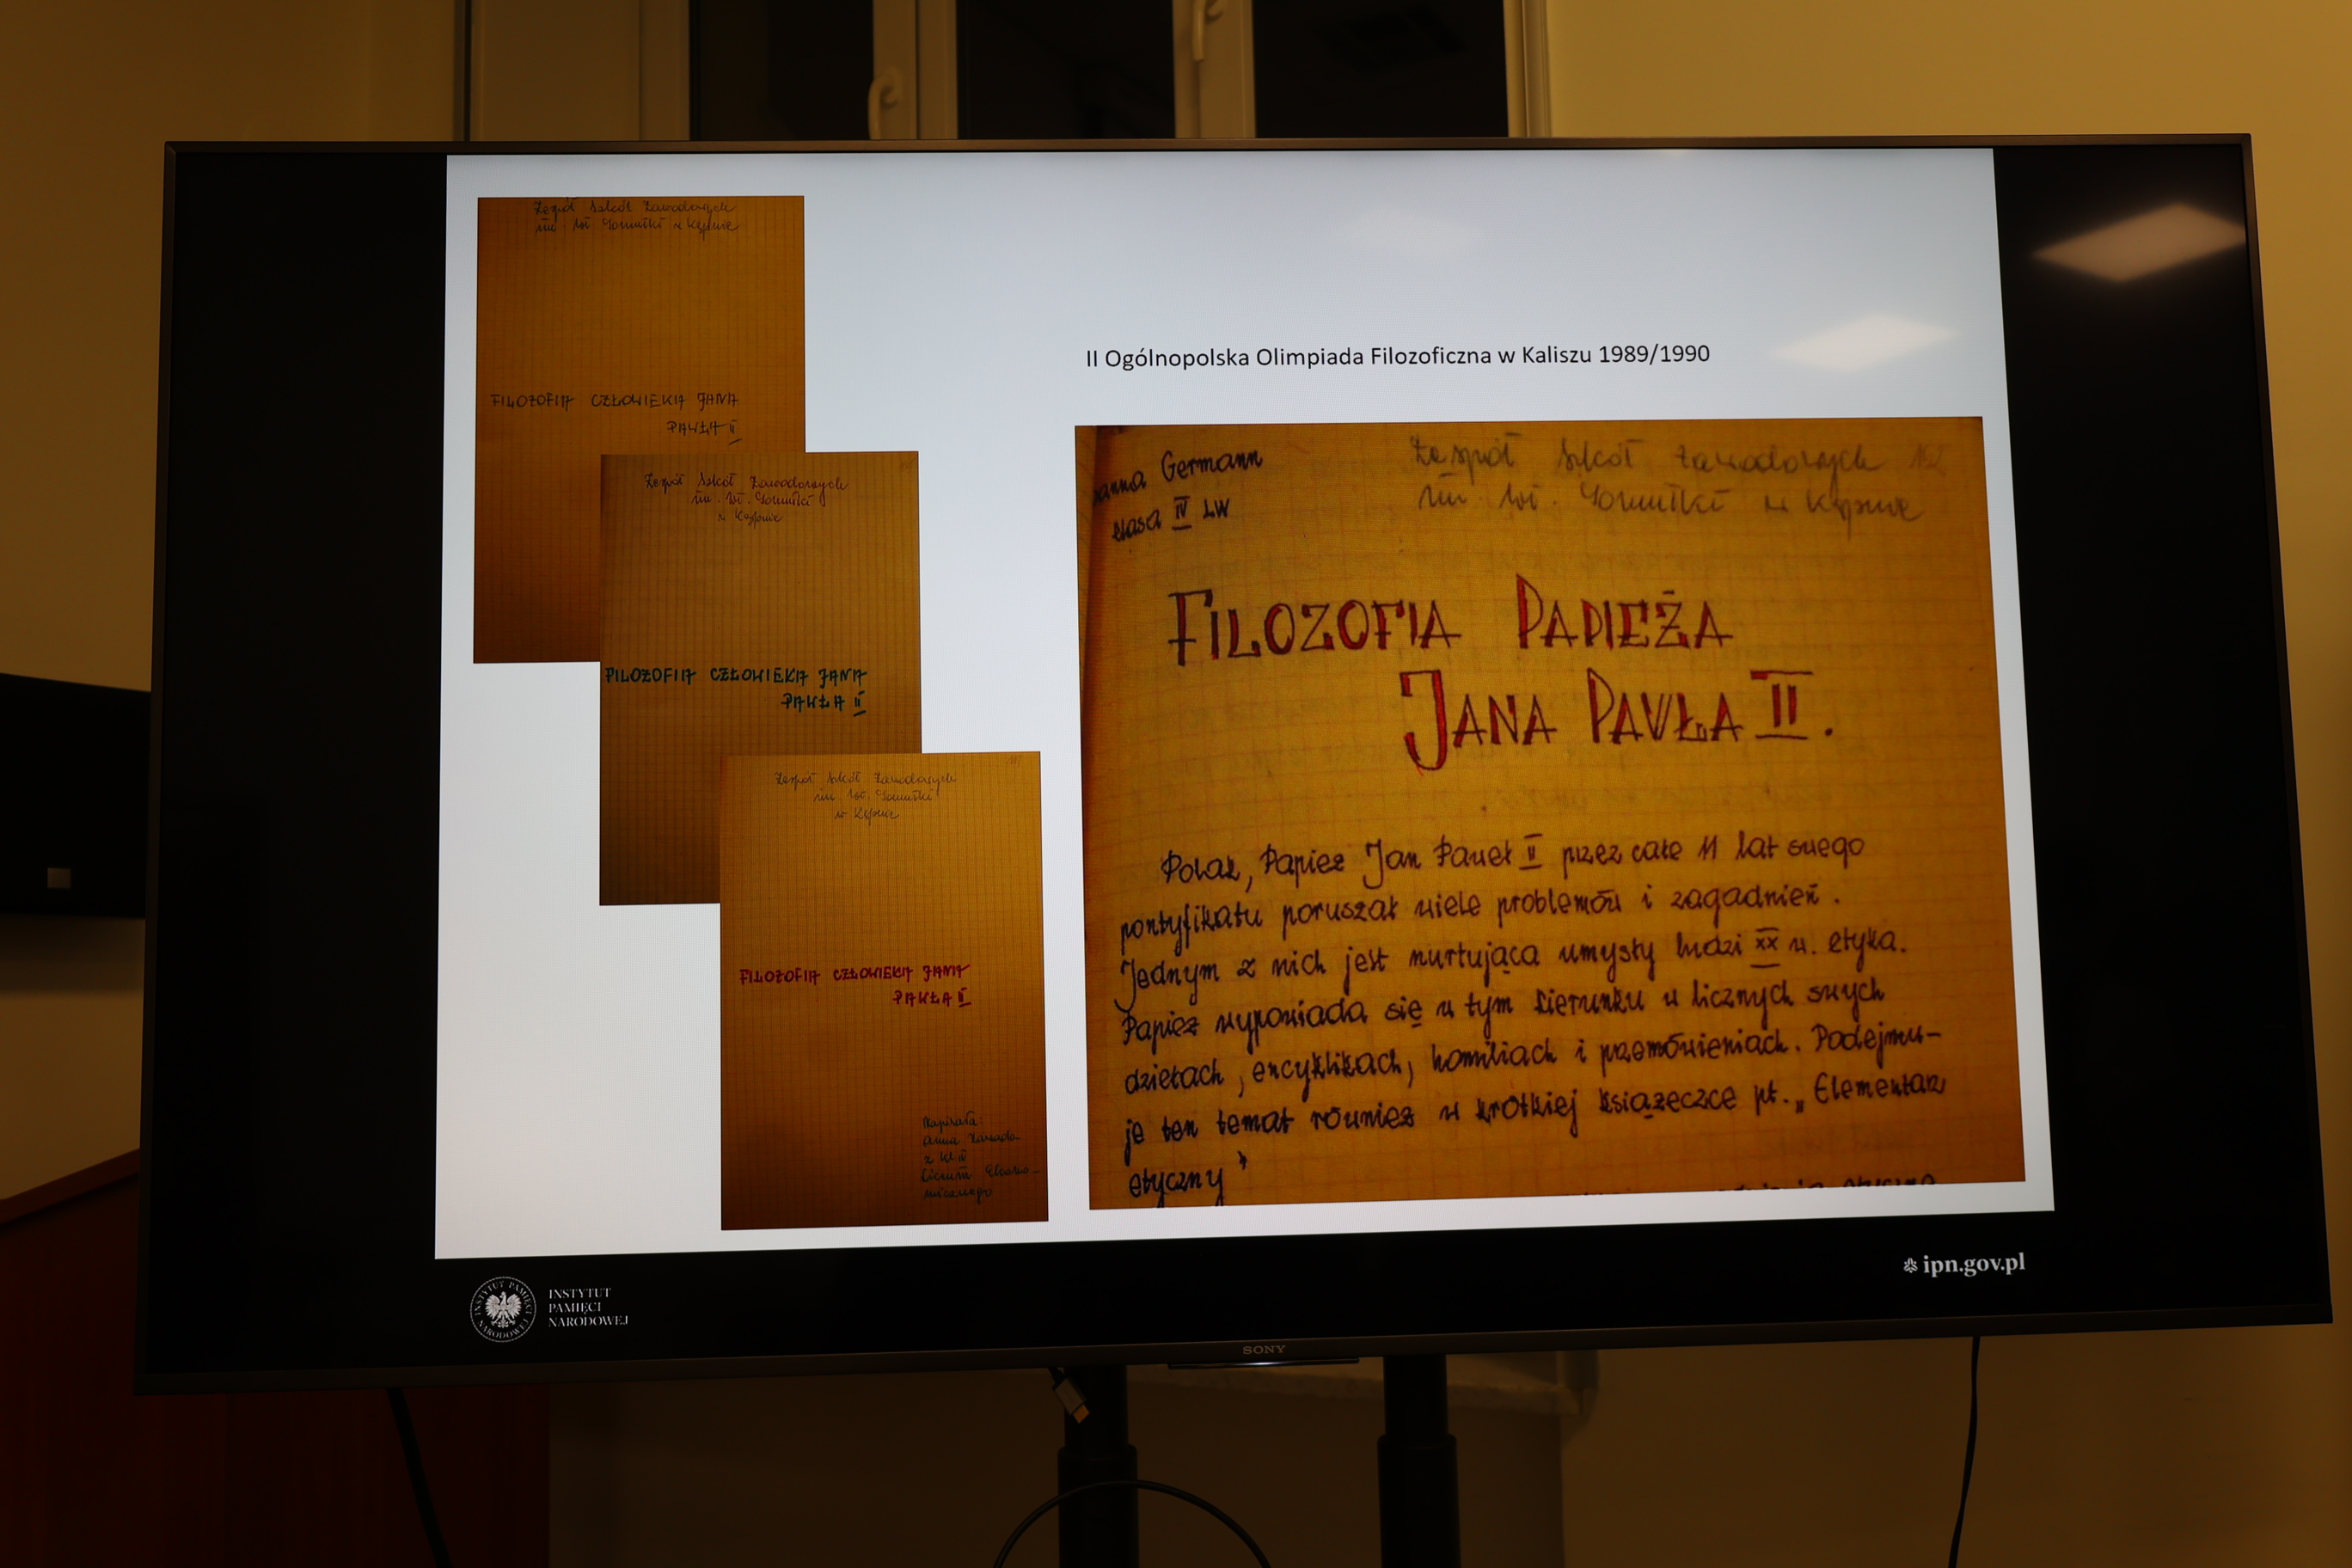 Zespół Szkół Zawodowych
im. Wł. Gomułki w Kępnie
FILOZOFIA CZŁOWIEKA JANA
PAWŁA II
Zespół Szkół Zawodowych
im. Wł. Gomułki
w Kępnie
FILOZOFIA CZŁOWIEKA JANA
PAWŁA II
Zespół Szkół Zawodowych
im. Wł. Gomułki
w Kępnie
FILOZOFIA CZŁOWIEKA JANA
PAWŁA II
Napisała:
Anna Zawada
z kl. IV
Liceum Ekono-
micznego
II Ogólnopolska Olimpiada Filozoficzna w Kaliszu 1989/1990
anna Germann
klasa IV LW
Zespół Szkół Zawodowych
im. Wł. Gomułki w Kępnie
FILOZOFIA PAPIEŻA
JANA PAWŁA II.
Polak, Papież Jan Paweł II przez całe 11 lat swego
pontyfikatu poruszał wiele problemów i zagadnień.
Jednym z nich jest nurtująca umysły ludzi XX w. etyka.
Papież wypowiada się w tym kierunku w licznych swych
dziełach, encyklikach, homiliach i przemówieniach. Podejmu-
je ten temat również w krótkiej książeczce pt. „Elementarz
etyczny"
INSTYTUT
PAMIĘCI
NARODOWEJ
INSTYTUT PAMIĘCI NARODOWEJ
ipn.gov.pl
SONY